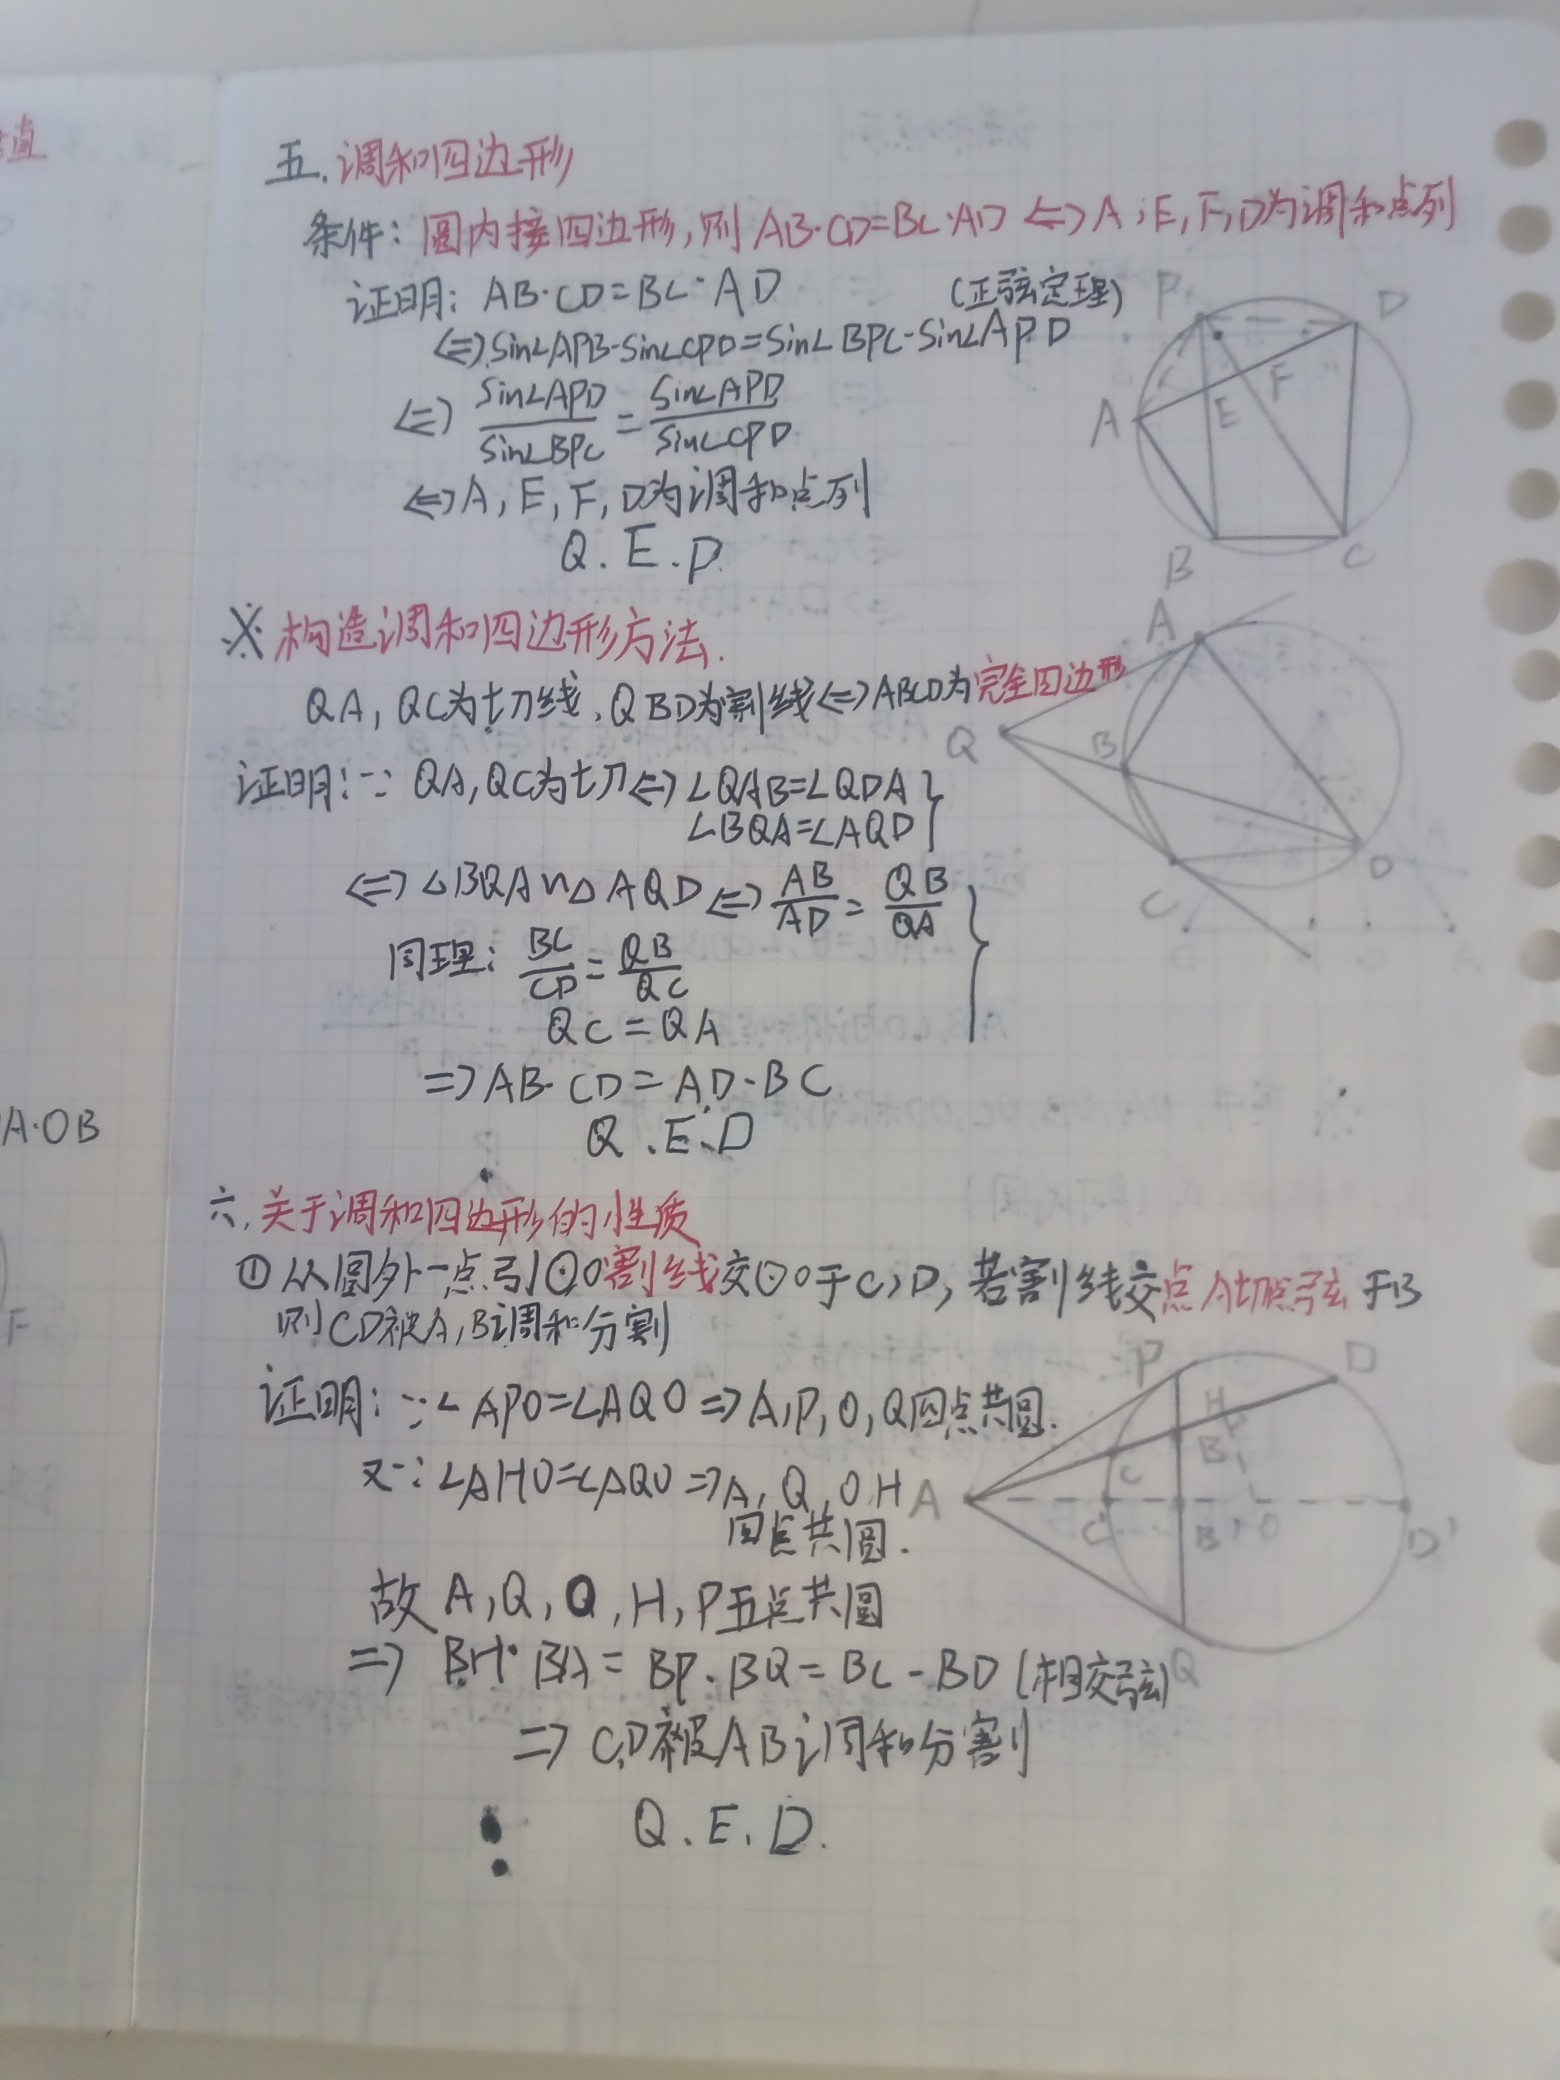 五.调和四边形
条件：圆内接四边形,则 AB·CD=BC·AD ⇔ A,E,F,D为调和点列
证明：AB·CD=BC·AD （正弦定理）
⇔ sin∠APB·sin∠CPD=sin∠BPC·sin∠APD
⇔ sin∠APD/sin∠BPC = sin∠APD/sin∠CPD
⇔ A,E,F,D为调和点列
Q.E.D.
P D
A E F
B C
※ 构造调和四边形方法.
QA,QC为切线,QBD为割线⇔ABCD为完全四边形
证明：∵ QA,QC为切⇔∠QAB=∠QDA
∠BQA=∠AQD
⇔ △BQA∽△AQD ⇔ AB/AD = QB/QA
同理：BC/CD = QB/QC
QC=QA
⇒AB·CD=AD·BC
Q.E.D
A
Q B
C D
六.关于调和四边形的性质
①从圆外一点引⊙O割线交⊙O于C,D,若割线交点A切点弦于B
则CD被A,B调和分割
证明：∵∠APO=∠AQO⇒A,P,O,Q四点共圆.
又∵∠AHO=∠AQO⇒A,Q,O,H
四点共圆.
故 A,Q,O,H,P五点共圆
⇒ BH·BA=BP·BQ=BC·BD (相交弦)
⇒ C,D被AB调和分割
Q.E.D.
P D
H
B
A C
C' B' O D'
Q
直
A·OB
F